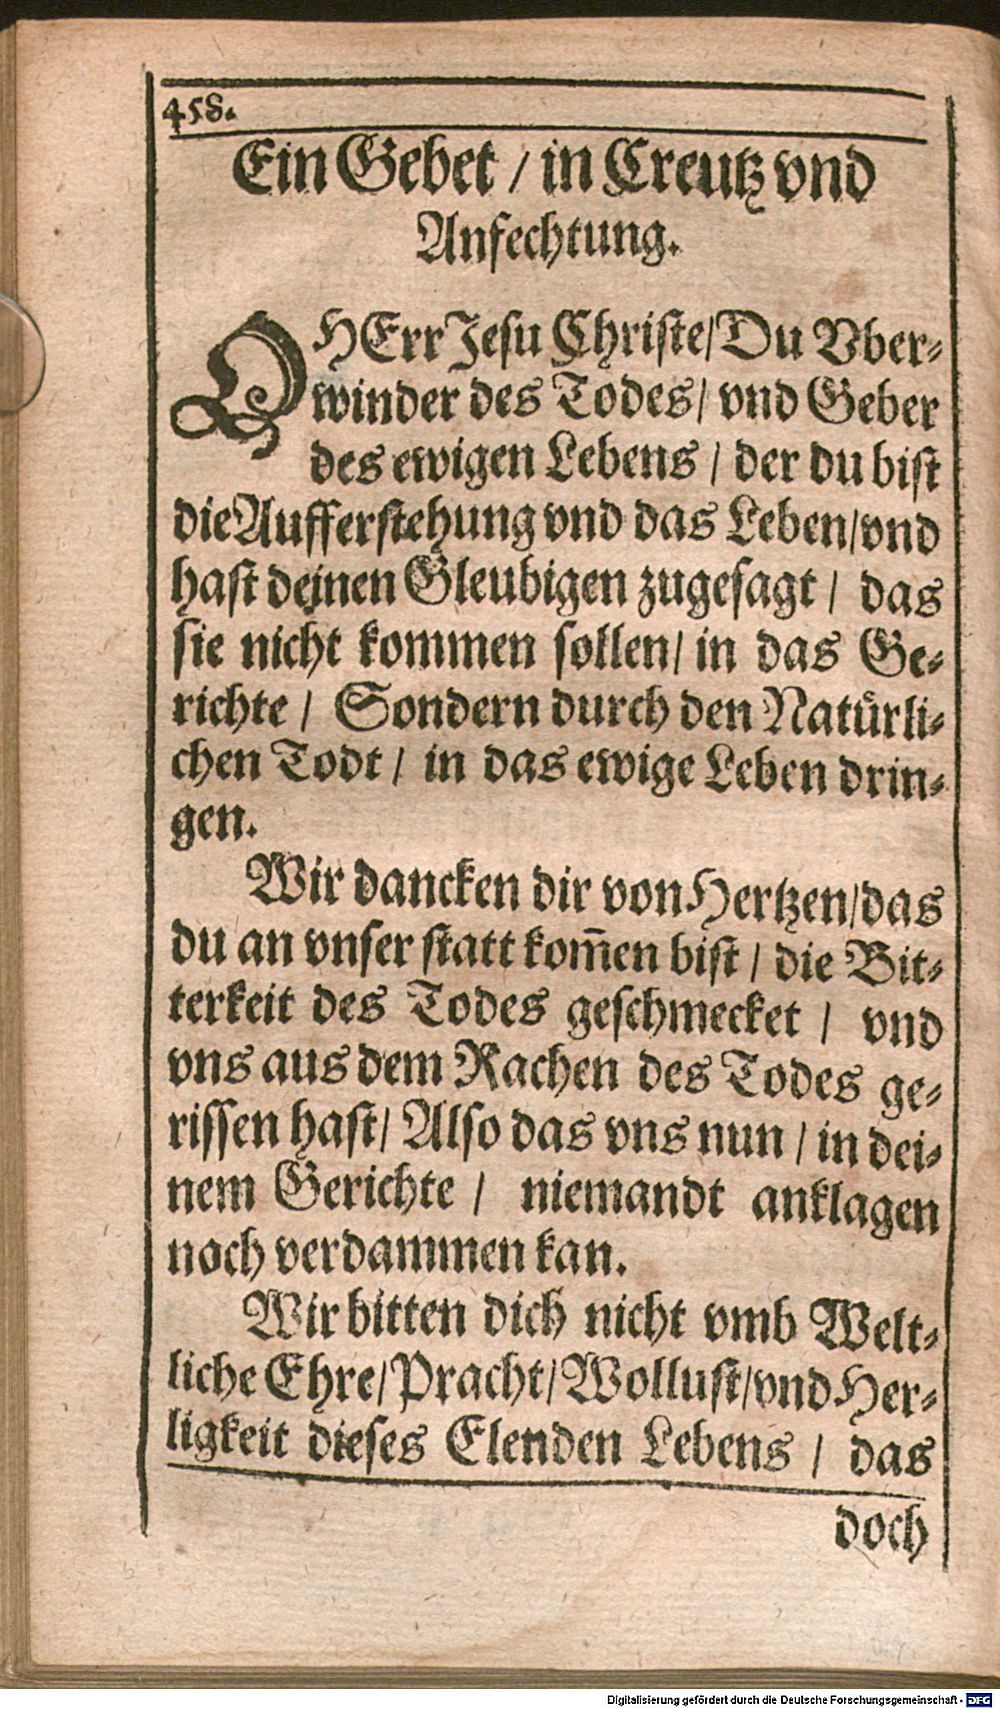 458.
Ein Gebet / in Creutz vnd
Anfechtung.
O HErr Jesu Christe / Du Vber-
winder des Todes / vnd Geber
des ewigen Lebens / der du bist
die Aufferstehung vnd das Leben / vnd
hast deinen Gleubigen zugesagt / das
sie nicht kommen sollen / in das Ge-
richte / Sondern durch den Natürli-
chen Todt / in das ewige Leben drin-
gen.
Wir dancken dir von Hertzen / das
du an vnser statt kom̃en bist / die Bit-
terkeit des Todes geschmecket / vnd
vns aus dem Rachen des Todes ge-
rissen hast / Also das vns nun / in dei-
nem Gerichte / niemandt anklagen
noch verdammen kan.
Wir bitten dich nicht vmb Welt-
liche Ehre / Pracht / Wollust / vnd Her-
ligkeit dieses Elenden Lebens / das
doch
Digitalisierung gefördert durch die Deutsche Forschungsgemeinschaft - DFG